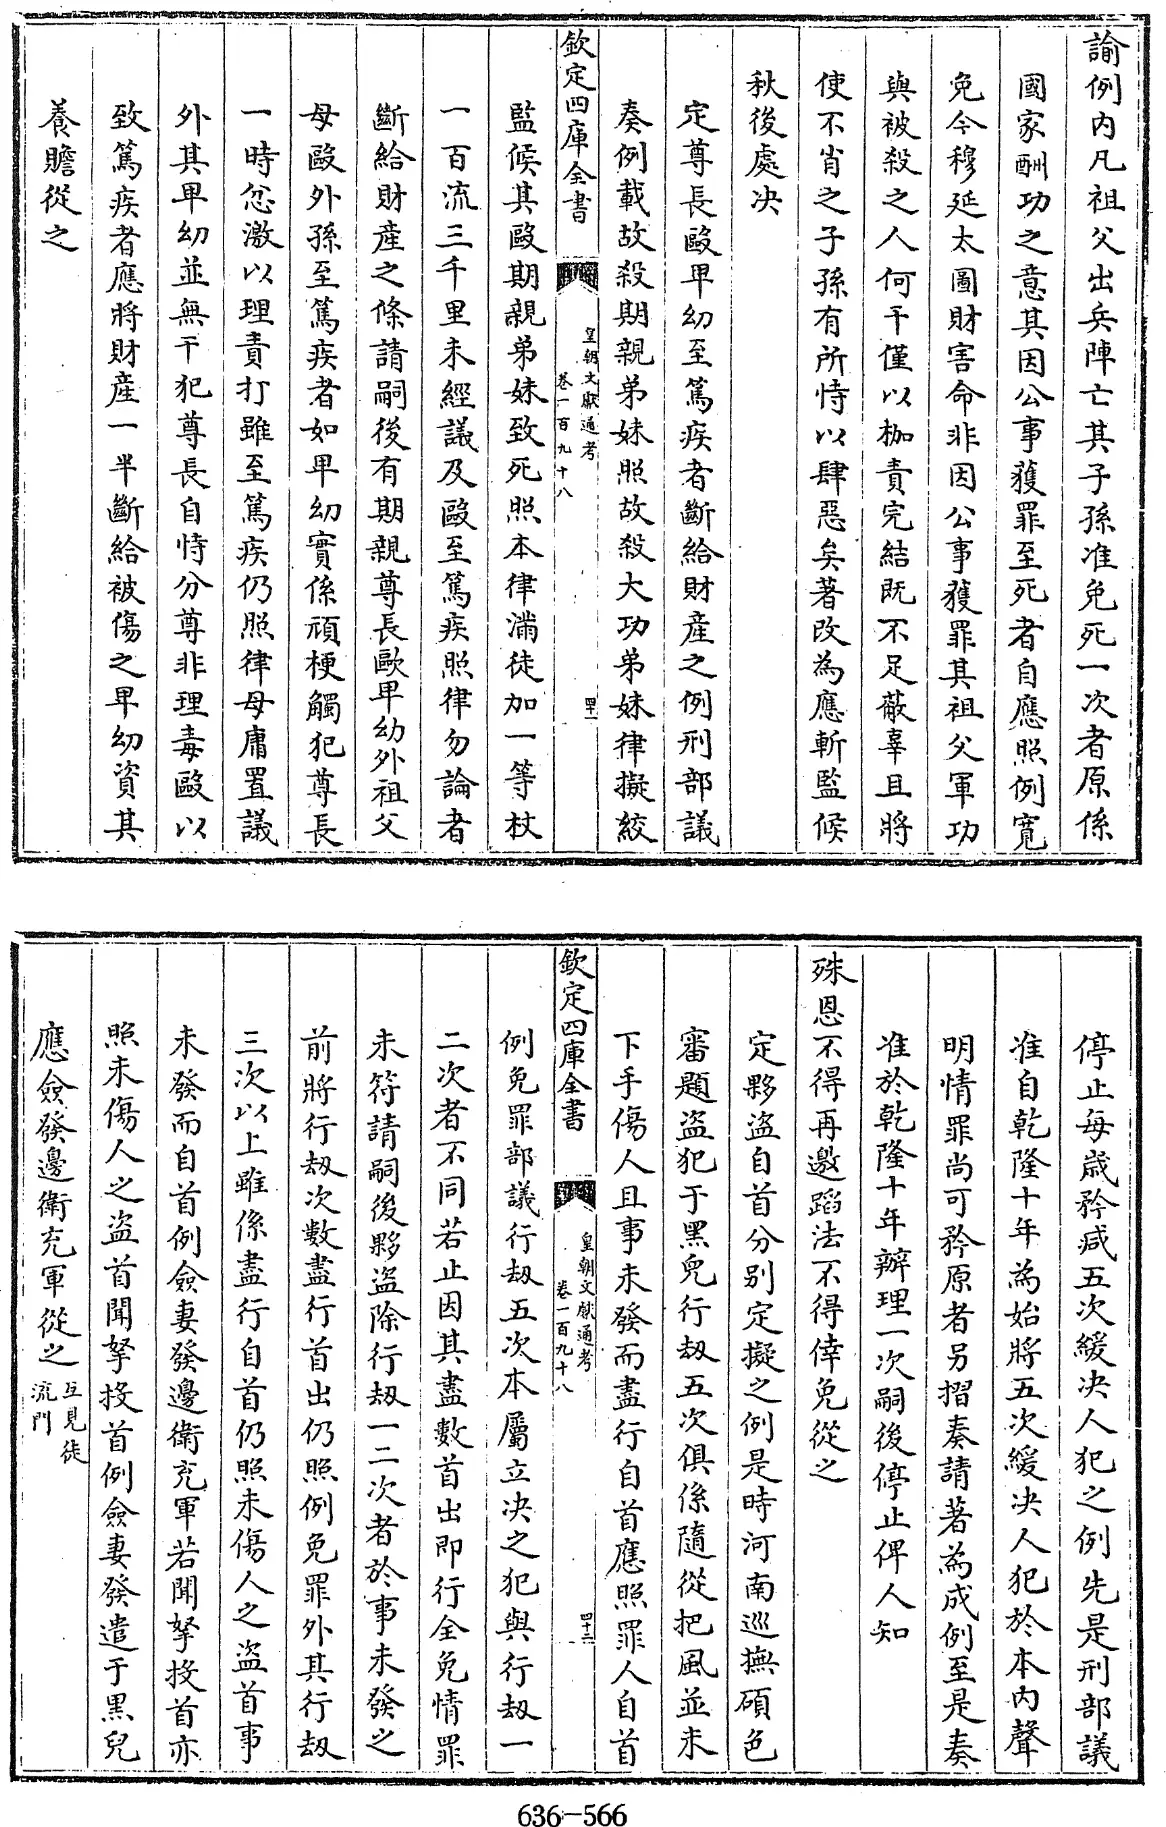 諭例内凡祖父出兵陣亡其子孫准免死一次者原係
國家酬功之意其因公事獲罪至死者自應照例寛
免今穆延太圖財害命非因公事獲罪其祖父軍功
與被殺之人何干僅以枷責完結既不足蔽辜且將
使不肖之子孫有所恃以肆惡矣著改為應斬監候
秋後處决
定尊長毆卑幼至篤疾者斷給財產之例刑部議
奏例載故殺期親弟妹照故殺大功弟妹律擬絞
欽定四庫全書
皇朝文獻通考
卷一百九十八
四十一
監候其毆期親弟妹致死照本律滿徒加一等杖
一百流三千里未經議及毆至篤疾照律勿論者
斷給財産之條請嗣後有期親尊長歐卑幼外祖父
母毆外孫至篤疾者如卑幼實係頑梗觸犯尊長
一時忿激以理責打雖至篤疾仍照律毋庸置議
外其卑幼並無干犯尊長自恃分尊非理毒毆以
致篤疾者應將財産一半斷給被傷之卑幼資其
養贍從之
停止每歲矜减五次緩决人犯之例先是刑部議
准自乾隆十年為始將五次緩决人犯於本内聲
明情罪尚可矜原者另摺奏請著為成例至是奏
准於乾隆十年辦理一次嗣後停止俾人知
殊恩不得再邀蹈法不得倖免從之
定夥盗自首分别定擬之例是時河南巡撫碩色
審題盗犯于黑兒行刼五次俱係隨從把風並未
下手傷人且事未發而盡行自首應照罪人自首
欽定四庫全書
皇朝文獻通考
卷一百九十八
四十二
例免罪部議行刼五次本屬立决之犯與行刼一
二次者不同若止因其盡數首出即行全免情罪
未符請嗣後夥盗除行刼一二次者於事未發之
前將行刼次數盡行首出仍照例免罪外其行刼
三次以上雖係盡行自首仍照未傷人之盗首事
未發而自首例僉妻發邊衛充軍若聞拏投首亦
照未傷人之盗首聞拏投首例僉妻發遣于黑兒
應僉發邊衛充軍從之互見徒
流門
636-566